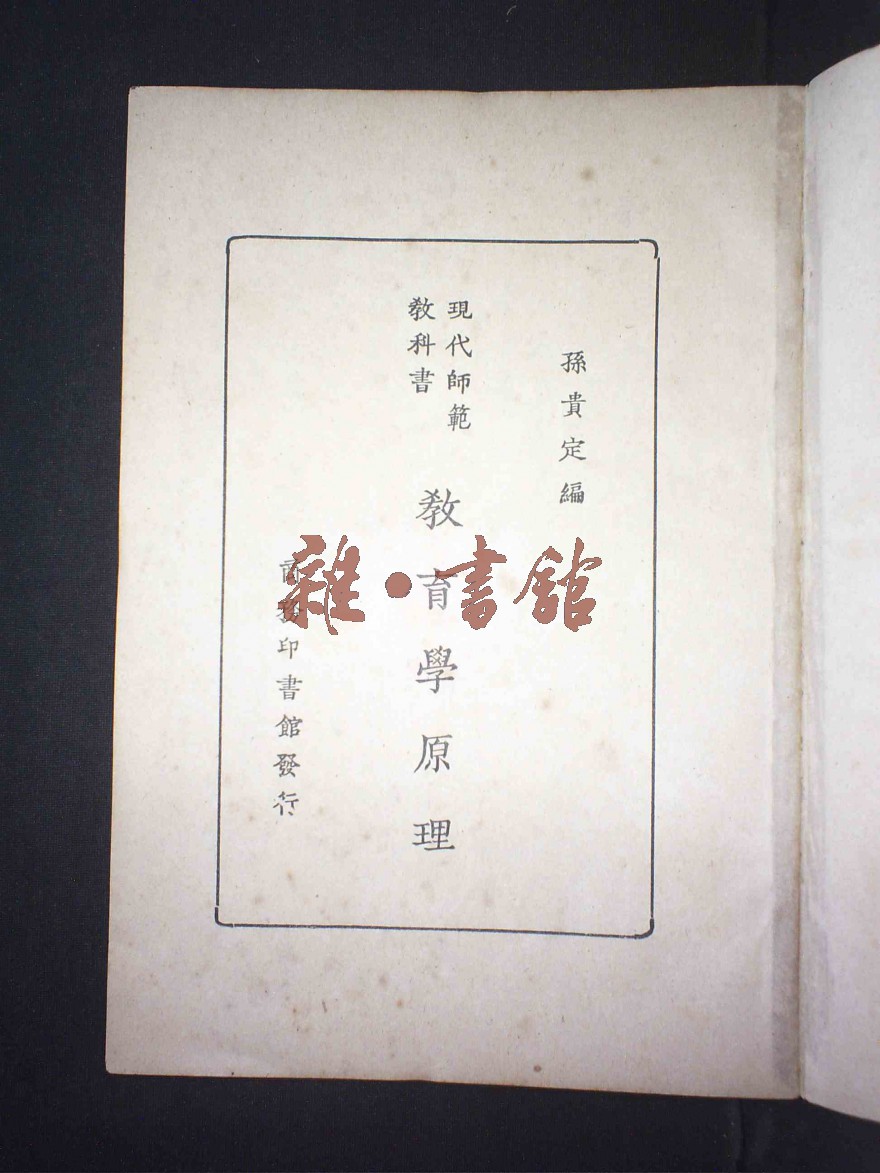 孫貴定編
現代師範
教科書
教育學原理
商務印書館發行
雜·書館